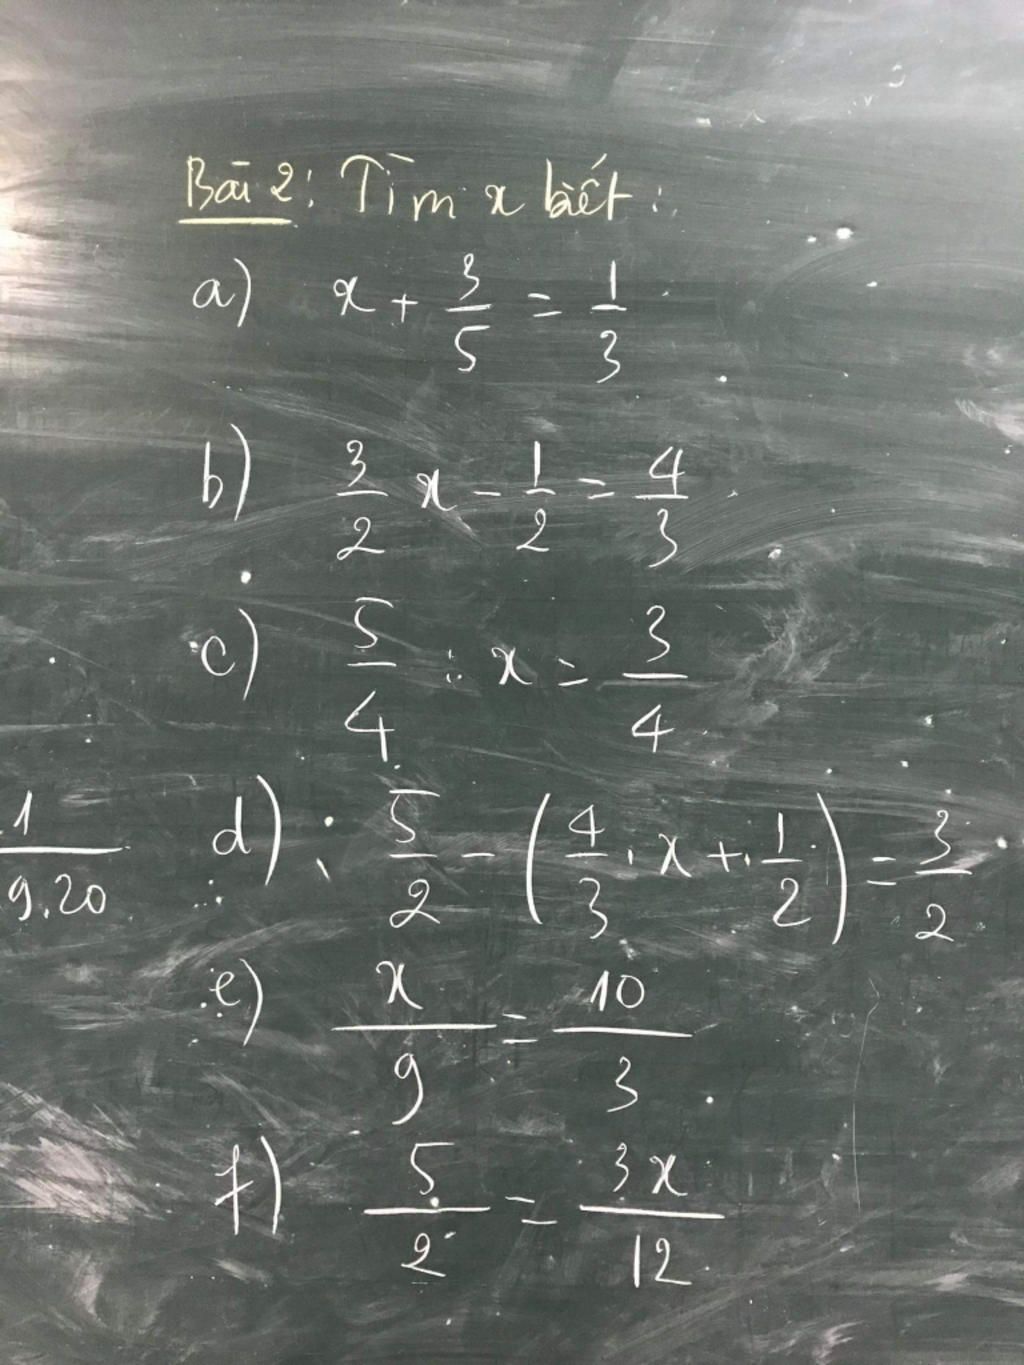 Bài 2: Tìm x biết:
a) x + 3/5 = 1/3
b) 3/2 x - 1/2 = 4/3
c) 5/4 : x = 3/4
1/9.20
d) 5/2 - (4/3 . x + 1/2) = 3/2
e) x/9 = 10/3
f) 5/2 = 3x/12